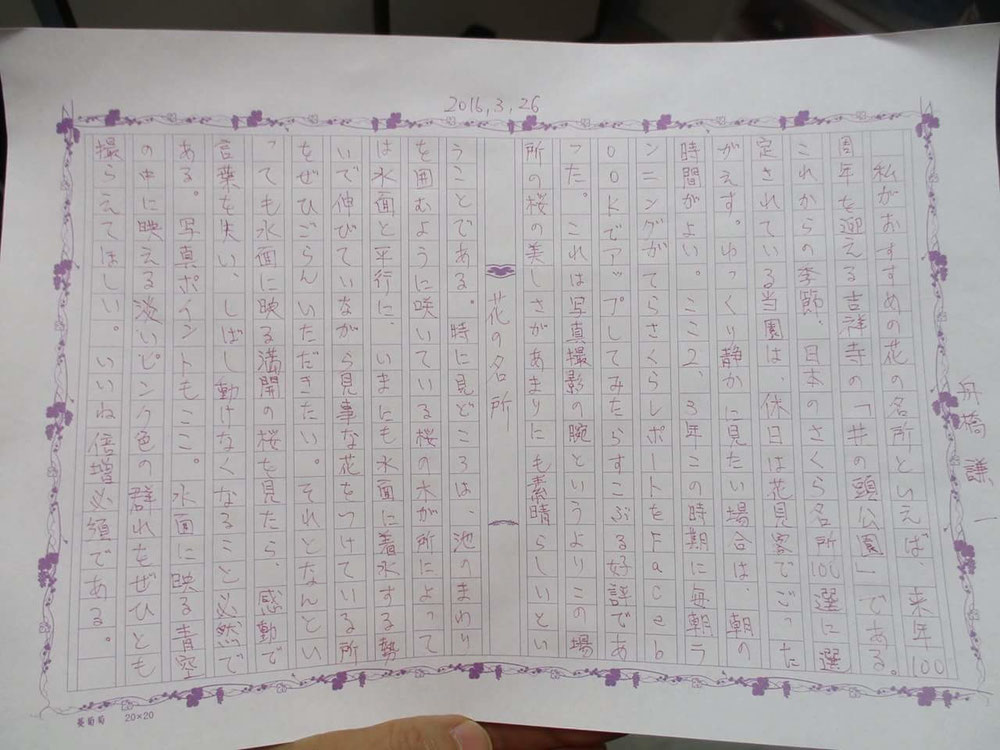 2016.3.26
舟橋謙一
私がおすすめの花の名所といえば、来年100
周年を迎える吉祥寺の「井の頭公園」である。
これからの季節、日本のさくら名所100選に選
定されている当園は、休日は花見客でごった
がえす。ゆっくり静かに見たい場合は、朝の
時間がよい。ここ2、3年この時期に毎朝ラ
ンニングがてらさくらレポートをFaceb
ookでアップしてみたらすこぶる好評であ
った。これは写真撮影の腕というよりこの場
所の桜の美しさがあまりにも素晴らしいとい
花の名所
うことである。時に見どころは、池のまわり
を囲むように咲いている桜の木が所によって
は水面と平行に、いまにも水面に着水する勢
いで伸びていながら見事な花をつけている所
をぜひごらんいただきたい。それとなんとい
っても水面に映る満開の桜を見たら、感動で
言葉を失い、しばし動けなくなること必然で
ある。写真ポイントもここ。水面に映る青空
の中に映える淡いピンク色の群れをぜひとも
撮らえてほしい。いいね倍増必須である。
葡萄 20×20